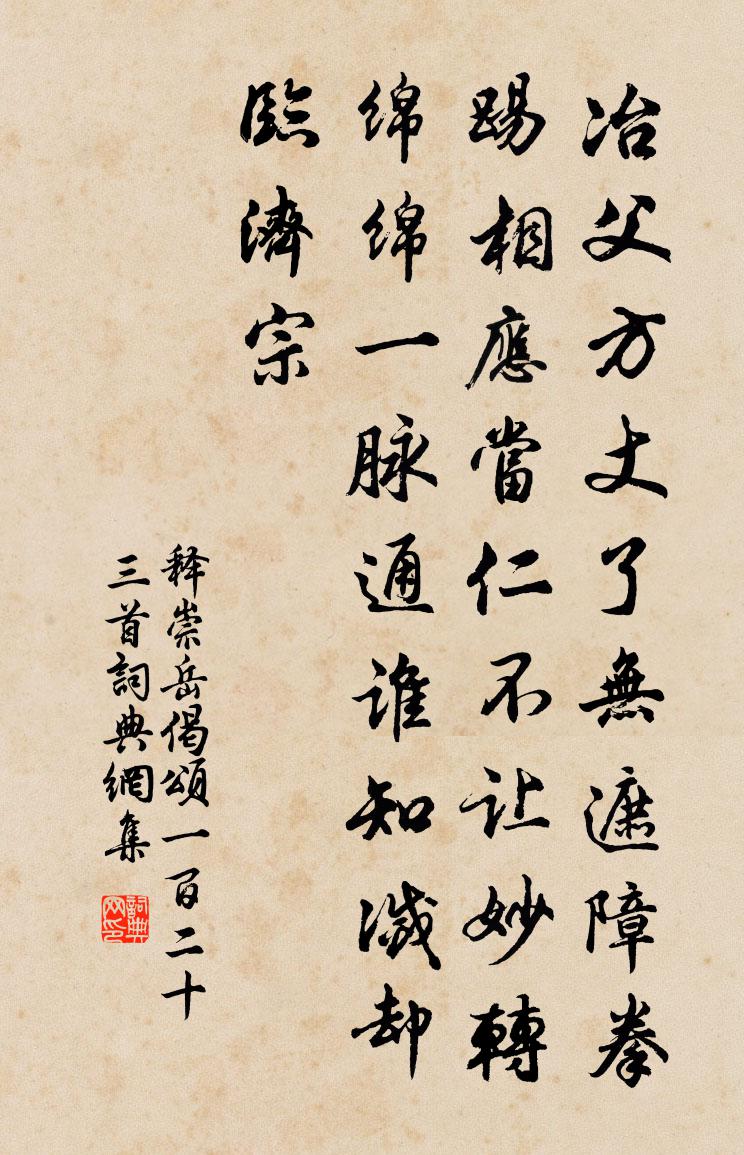 冶父方丈了無遮障拳
踢相應當仁不让妙轉
绵绵一脉通誰知滅却
臨濟宗
释崇岳偈頌一百二十
三首詞典網集
詞典网印